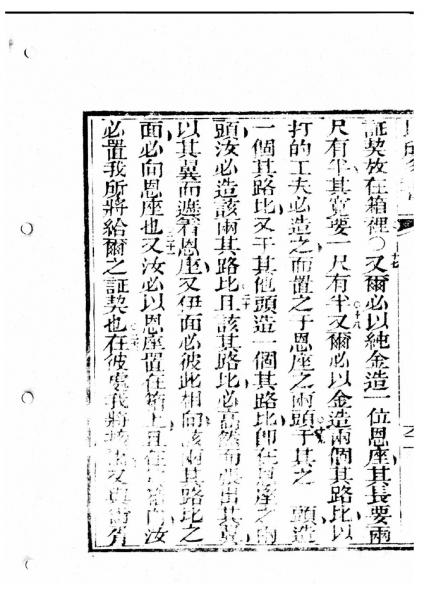 証契放在箱裡〇又爾必以純金造一位恩座其長要兩
尺有半其寬要一尺有半又爾必以金造兩個其路比以
打的工夫必造之而置之于恩座之兩頭于其之 頭造
一個其路比又于其他頭造一個其路比即在恩座之兩
頭汝必造該兩其路比且該其路比必高然而張出其翼
以其翼而遮着恩座又伊面必彼此相向該兩其路比之
面必向恩座也又汝必以恩座置在箱上且在箱 內汝
必置我所將給爾之証契也在彼處我將 又